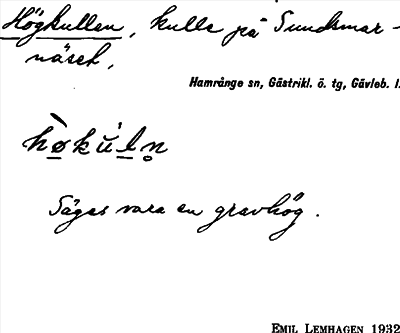 Högkullen, kulle på Sundsmar-
näset,
Hamrånge sn, Gästrikl. ö. tg, Gävleb. l.
hø̀kúl̥n̥
Säges vara en gravhög.
EMIL LEMHAGEN 1932